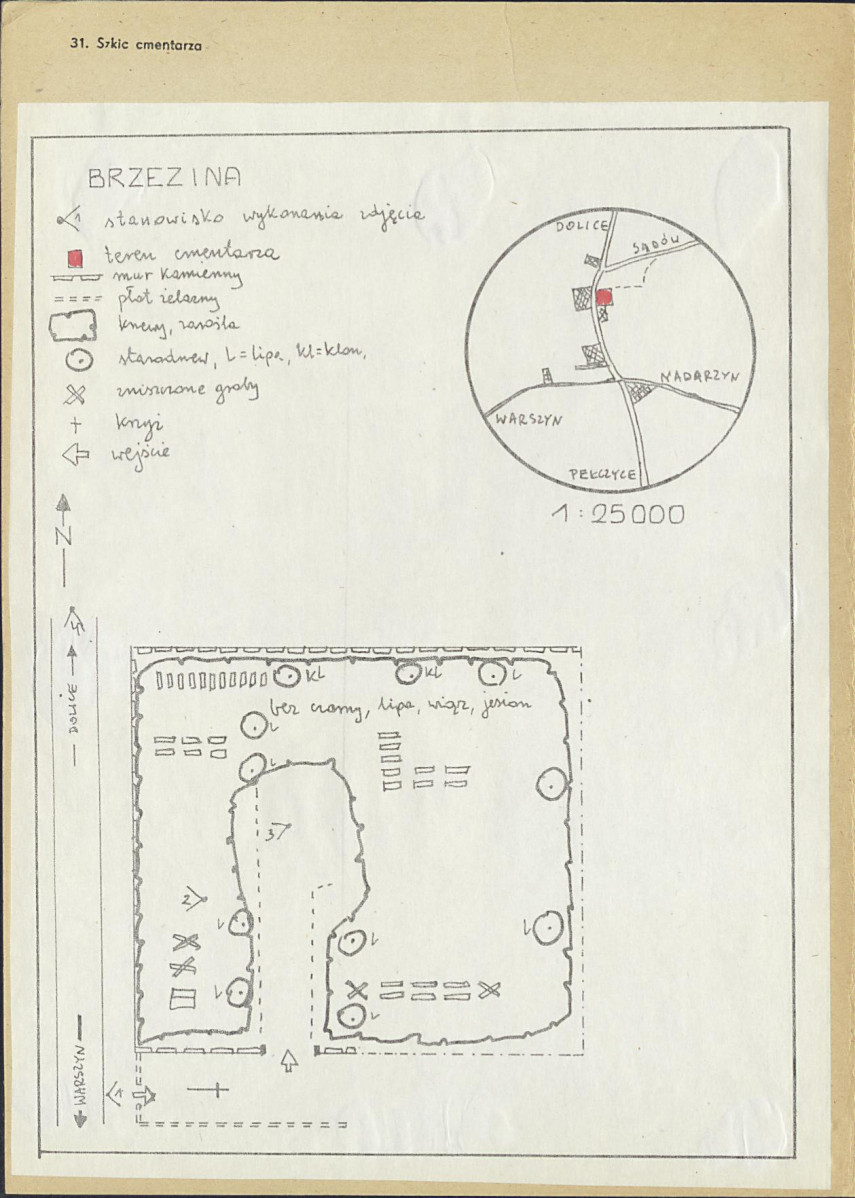 31. Szkic cmentarza
BRZEZINA
1 stanowisko wykonania zdjęcia
teren cmentarza
mur kamienny
płot żelazny
krzewy, zarośla
starodrzew, L=lipa, kl=klon,
zniszczone groby
krzyż
wejście
DOLICE
SĄDÓW
NADARZYN
WARSZYN
PEŁCZYCE
1:25000
N
4
DOLICE
WARSZYN
kl
kl
L
bez czarny, lipa, wiąz, jesion
L
L
3
2
L
L
L
L
L
1